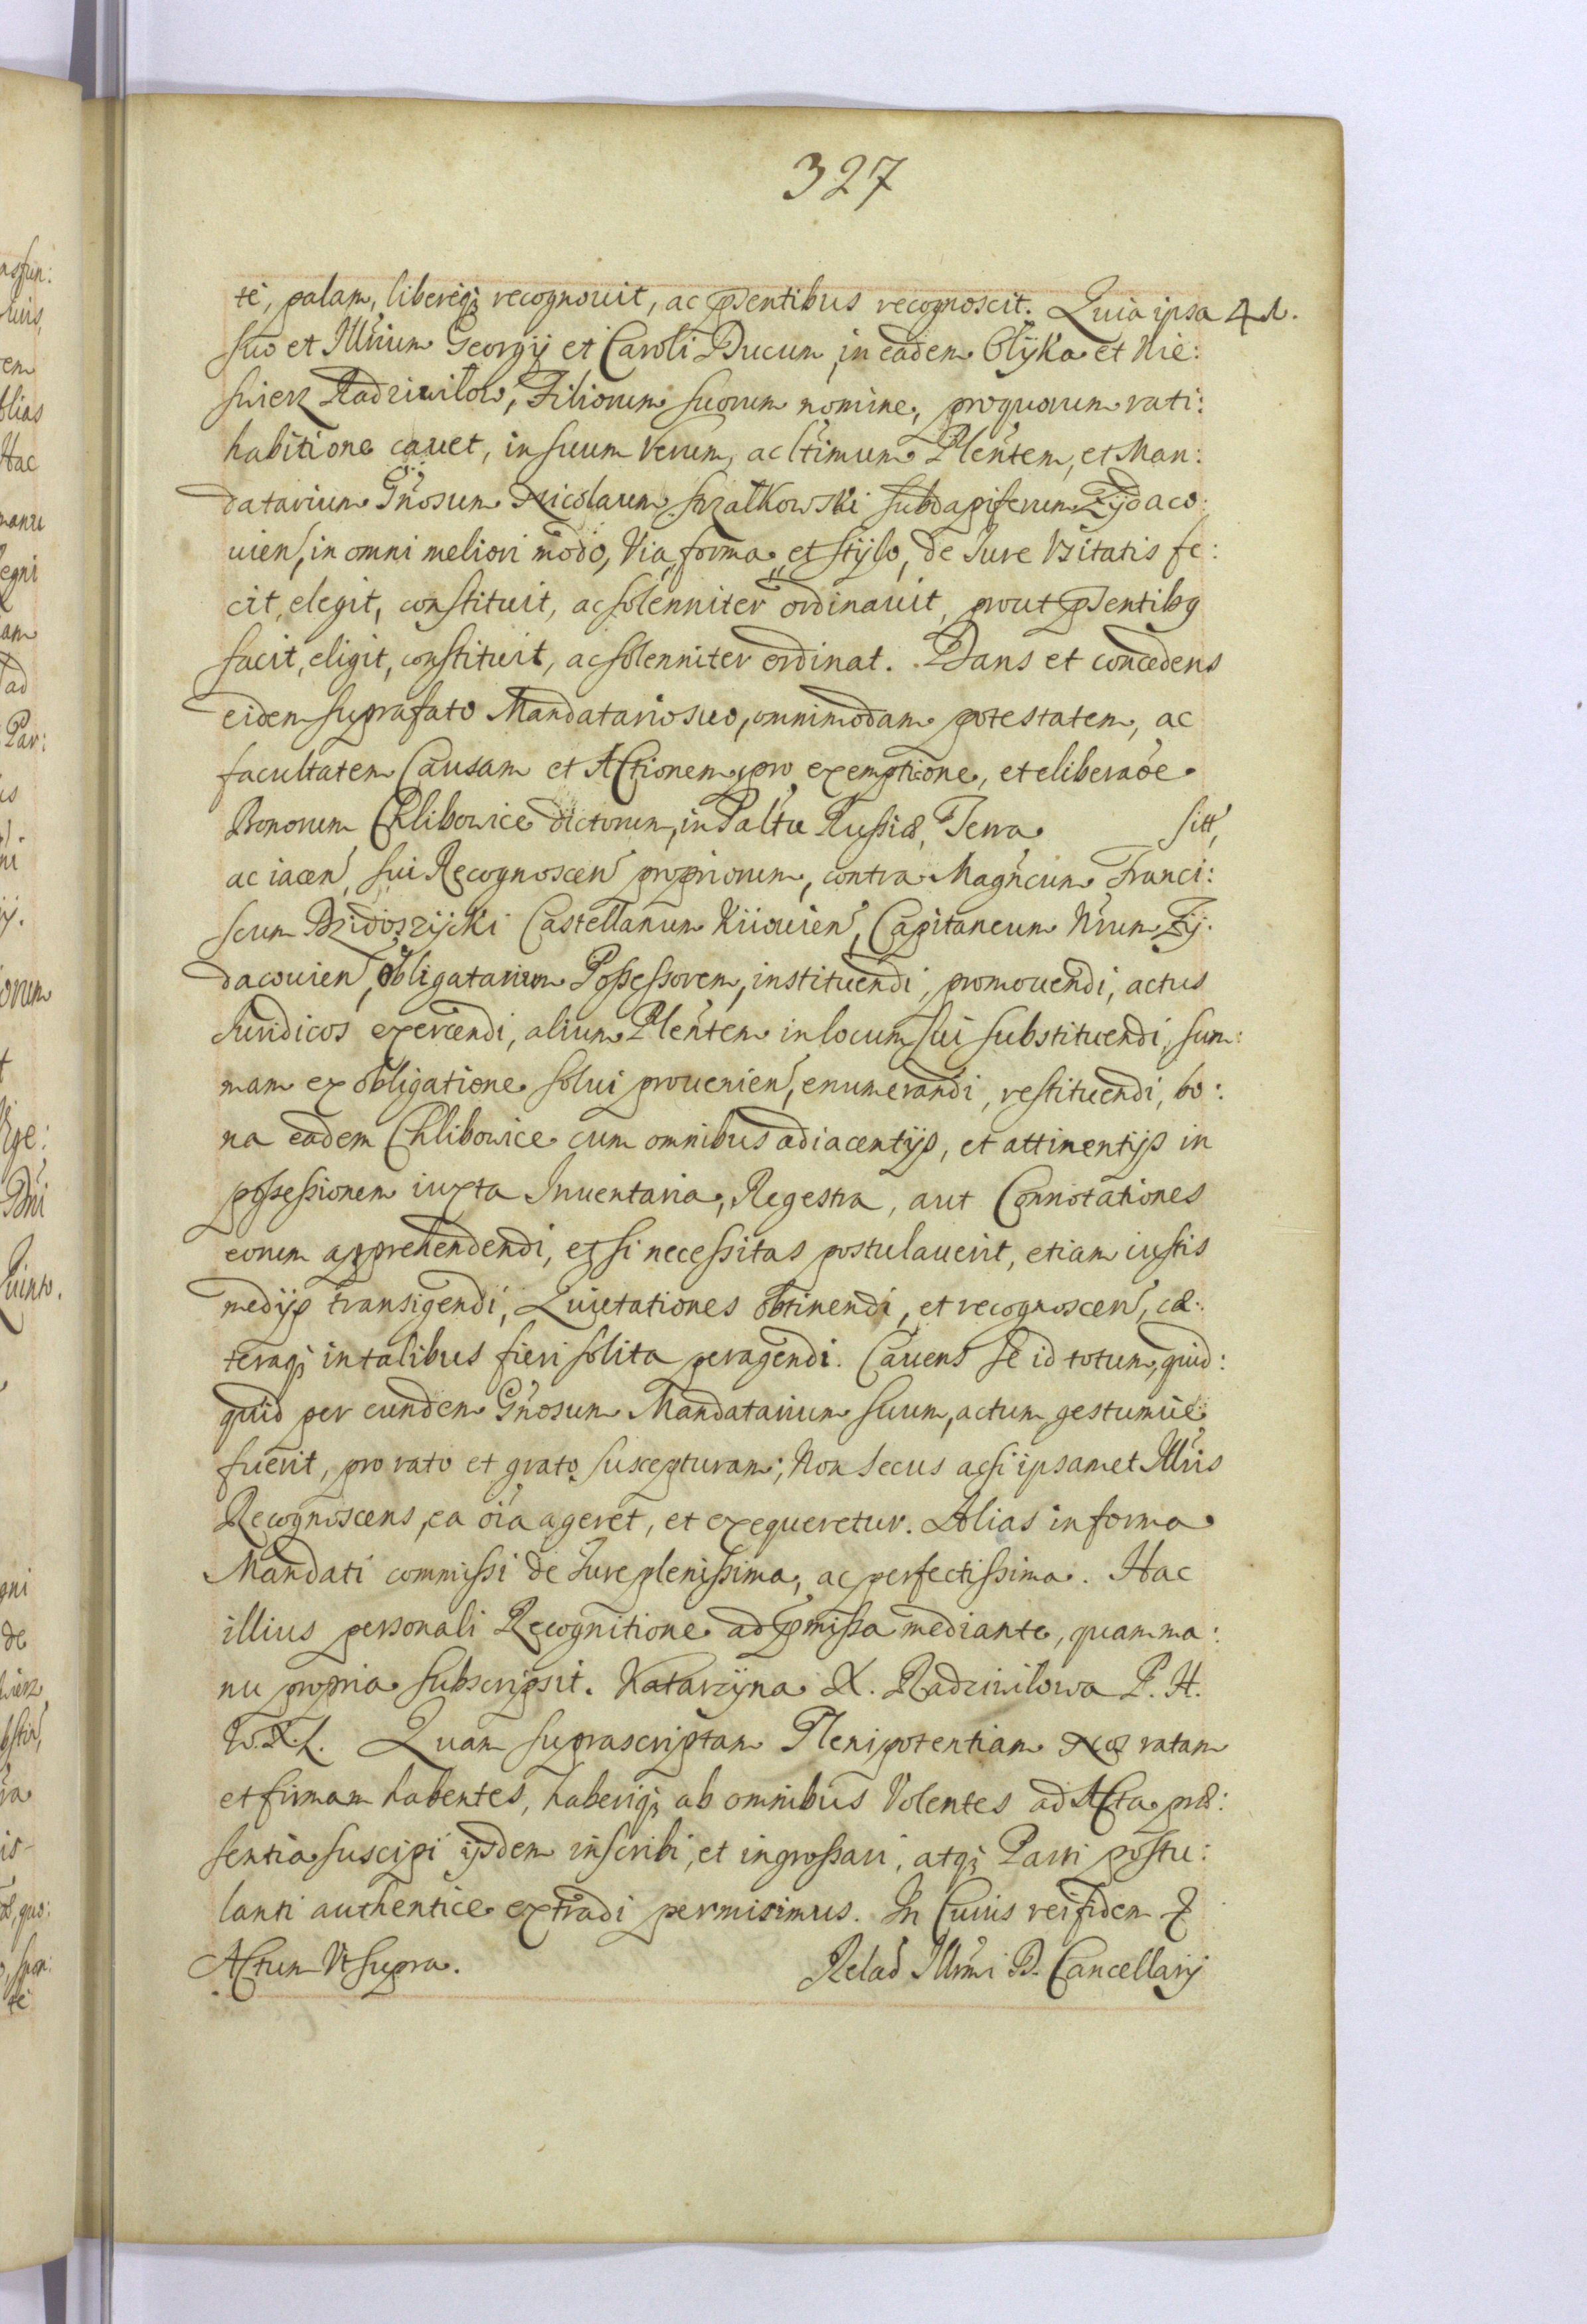 327
te, palam, libereqꝫ recognouit, ac pñsentibus recognoscit. Quia ipsa
suo et Illrium Georgij et Caroli Ducum, in eadem Olyka et Nie:
swierz Radziwilow, Filiorum suorum nomine, pro quorum rati:
habitione cauet, in suum Verum, ac ltimum Plentem, et Man:
datarium Gnosum Nicolaum Skalkowski Subdapiferum Zydaco:
uien, in omni meliori modo, Via, forma, et stylo, de Iure Vsitatis fe:
cit, elegit, constituit, ac solenniter ordinauit, prout pñsentibꝰ
facit, eligit, constituit, ac solenniter ordinat. Dans et concedens
eidem suprafato Mandatario suo, omnimodam potestatem, ac
facultatem Causam et Actionem, pro exemptione, et eliberaõe
Bonorum Chlibowice dictorum, in Paltu Russiæ, Terra sitt,
ac iacen, sui Recognoscen propriorum, contra Magncum Franci:
scum Dzidoszycki Castellanum Kiiouien, Capitaneum Nrum Zy:
dacouien, obligatarium Possessorem, instituendi, promouendi, actus
Iuridicos exercendi, alium Plentem in locum sui substituendi, sum:
mam ex obligatione solui prouenien, enumerandi, restituendi, bo:
na eadem Chlibowice cum omnibus adiacentijs, et attinentijs in
possessionem iuxta Inuentaria, Regestra, aut Connotationes
eorum apprehendendi, et si necessitas postulauerit, etiam iustis
medijs transigendi, Quietationes obtinendi, et recognoscen, cæ:
teraqꝫ in talibus fieri solita peragendi. Cauens se id totum, quid:
quid per eundem Gnosum Mandatarium suum, actum gestumue
fuerit, pro rato et grato suscepturam; Non secus ac si ipsamet Illris
Recognoscens, ea oia ageret, et exequeretur. Alias in forma
Mandati commissi de Iure plenissima, ac perfectissima. Hac
illius personali Recognitione ad pmissa mediante, quam ma:
nu propria subscripsit. Katarzyna X. Radziwilowa P. H.
W. X. L. Quam suprascriptam Plenipotentiam Nos ratam
et firmam habentes, haberiqꝫ ab omnibus Volentes ad Acta præ:
sentia suscipi ijsdem inscribi, et ingrossari, atqꝫ Parti postu:
lanti authentice extradi permisimus. In Cuius rei fidem
Actum Vt supra. Relaõ Illrmi D. Cancellarij